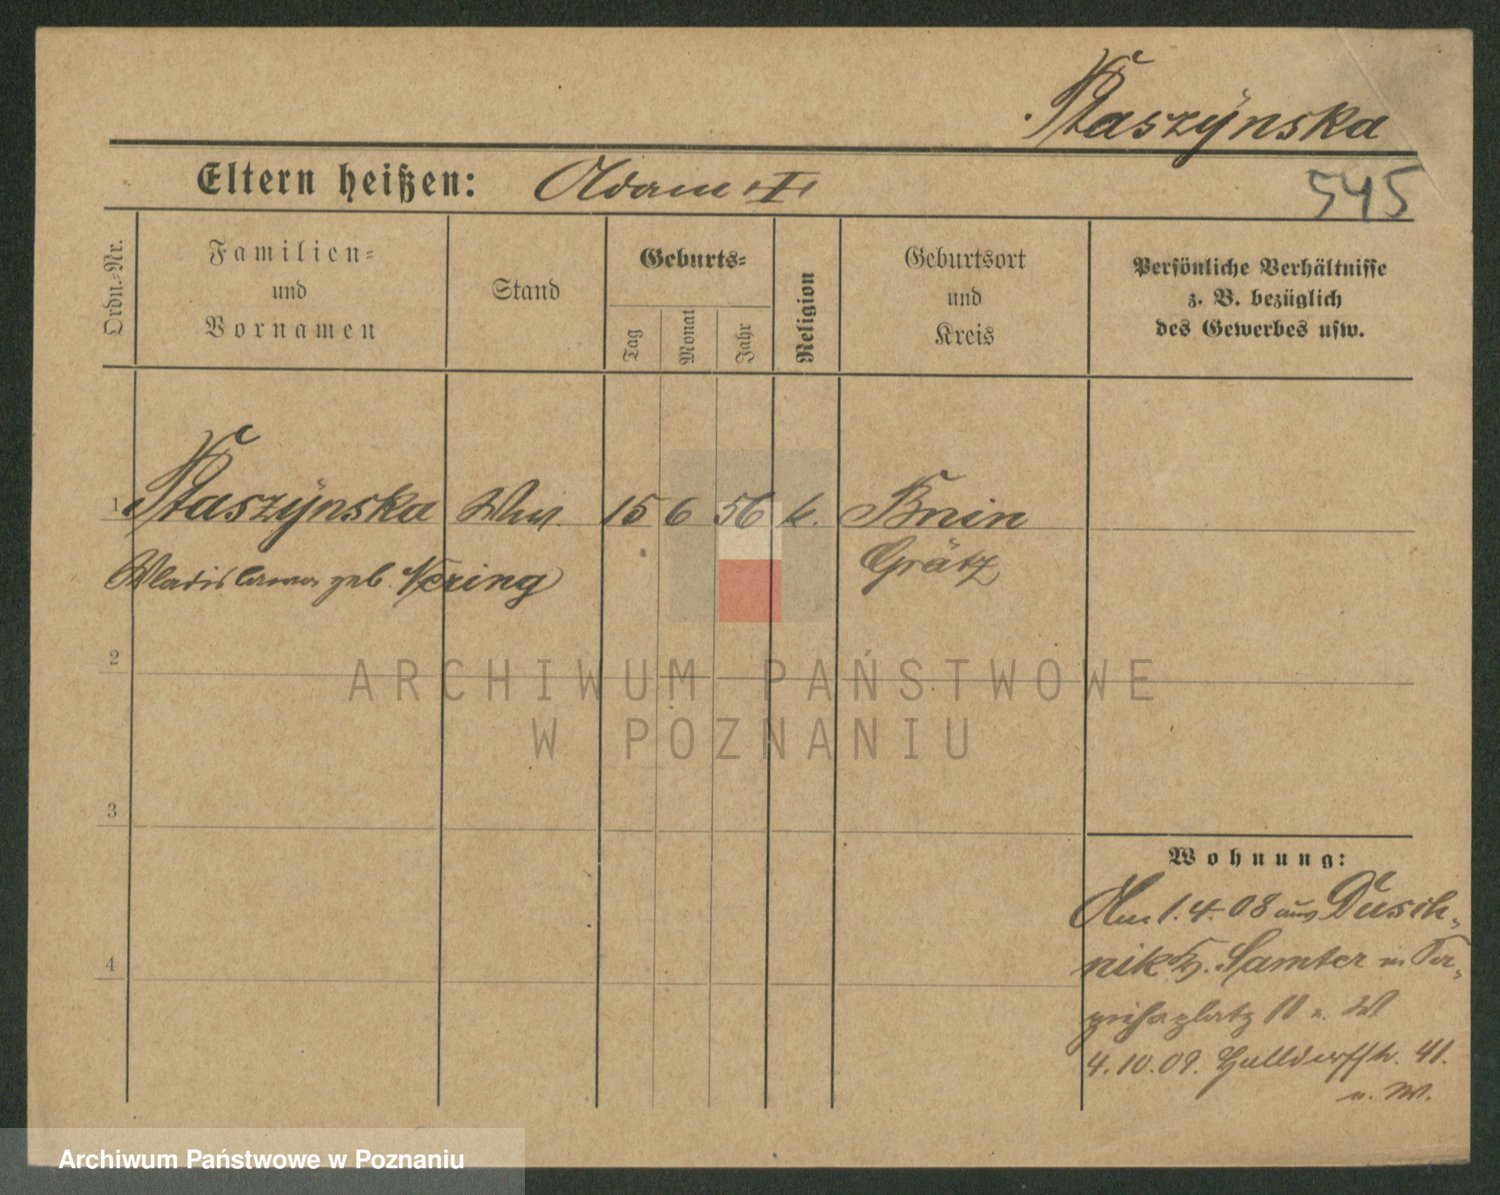 Staszÿnska
Eltern heißen: Adam "I"
545
Ordn.-Nr.
Familien-
und
Vornamen
Stand
Geburts-
Tag
Monat
Jahr
Religion
Geburtsort
und
Kreis
Persönliche Verhältnisse
z. B. bezüglich
des Gewerbes usw.
1 Staszÿnska Ww. 15 6 56 k. Bnin
Wladislawa geb. Nering
Grätz
2
3
4
Wohnung:
Am 1.4.08 aus Dusch-
nik Kr. Samter in
platz 11 W
4.10.09. Halldorfstr. 41.
W.
ARCHIWUM PAŃSTWOWE
W POZNANIU
Archiwum Państwowe w Poznaniu